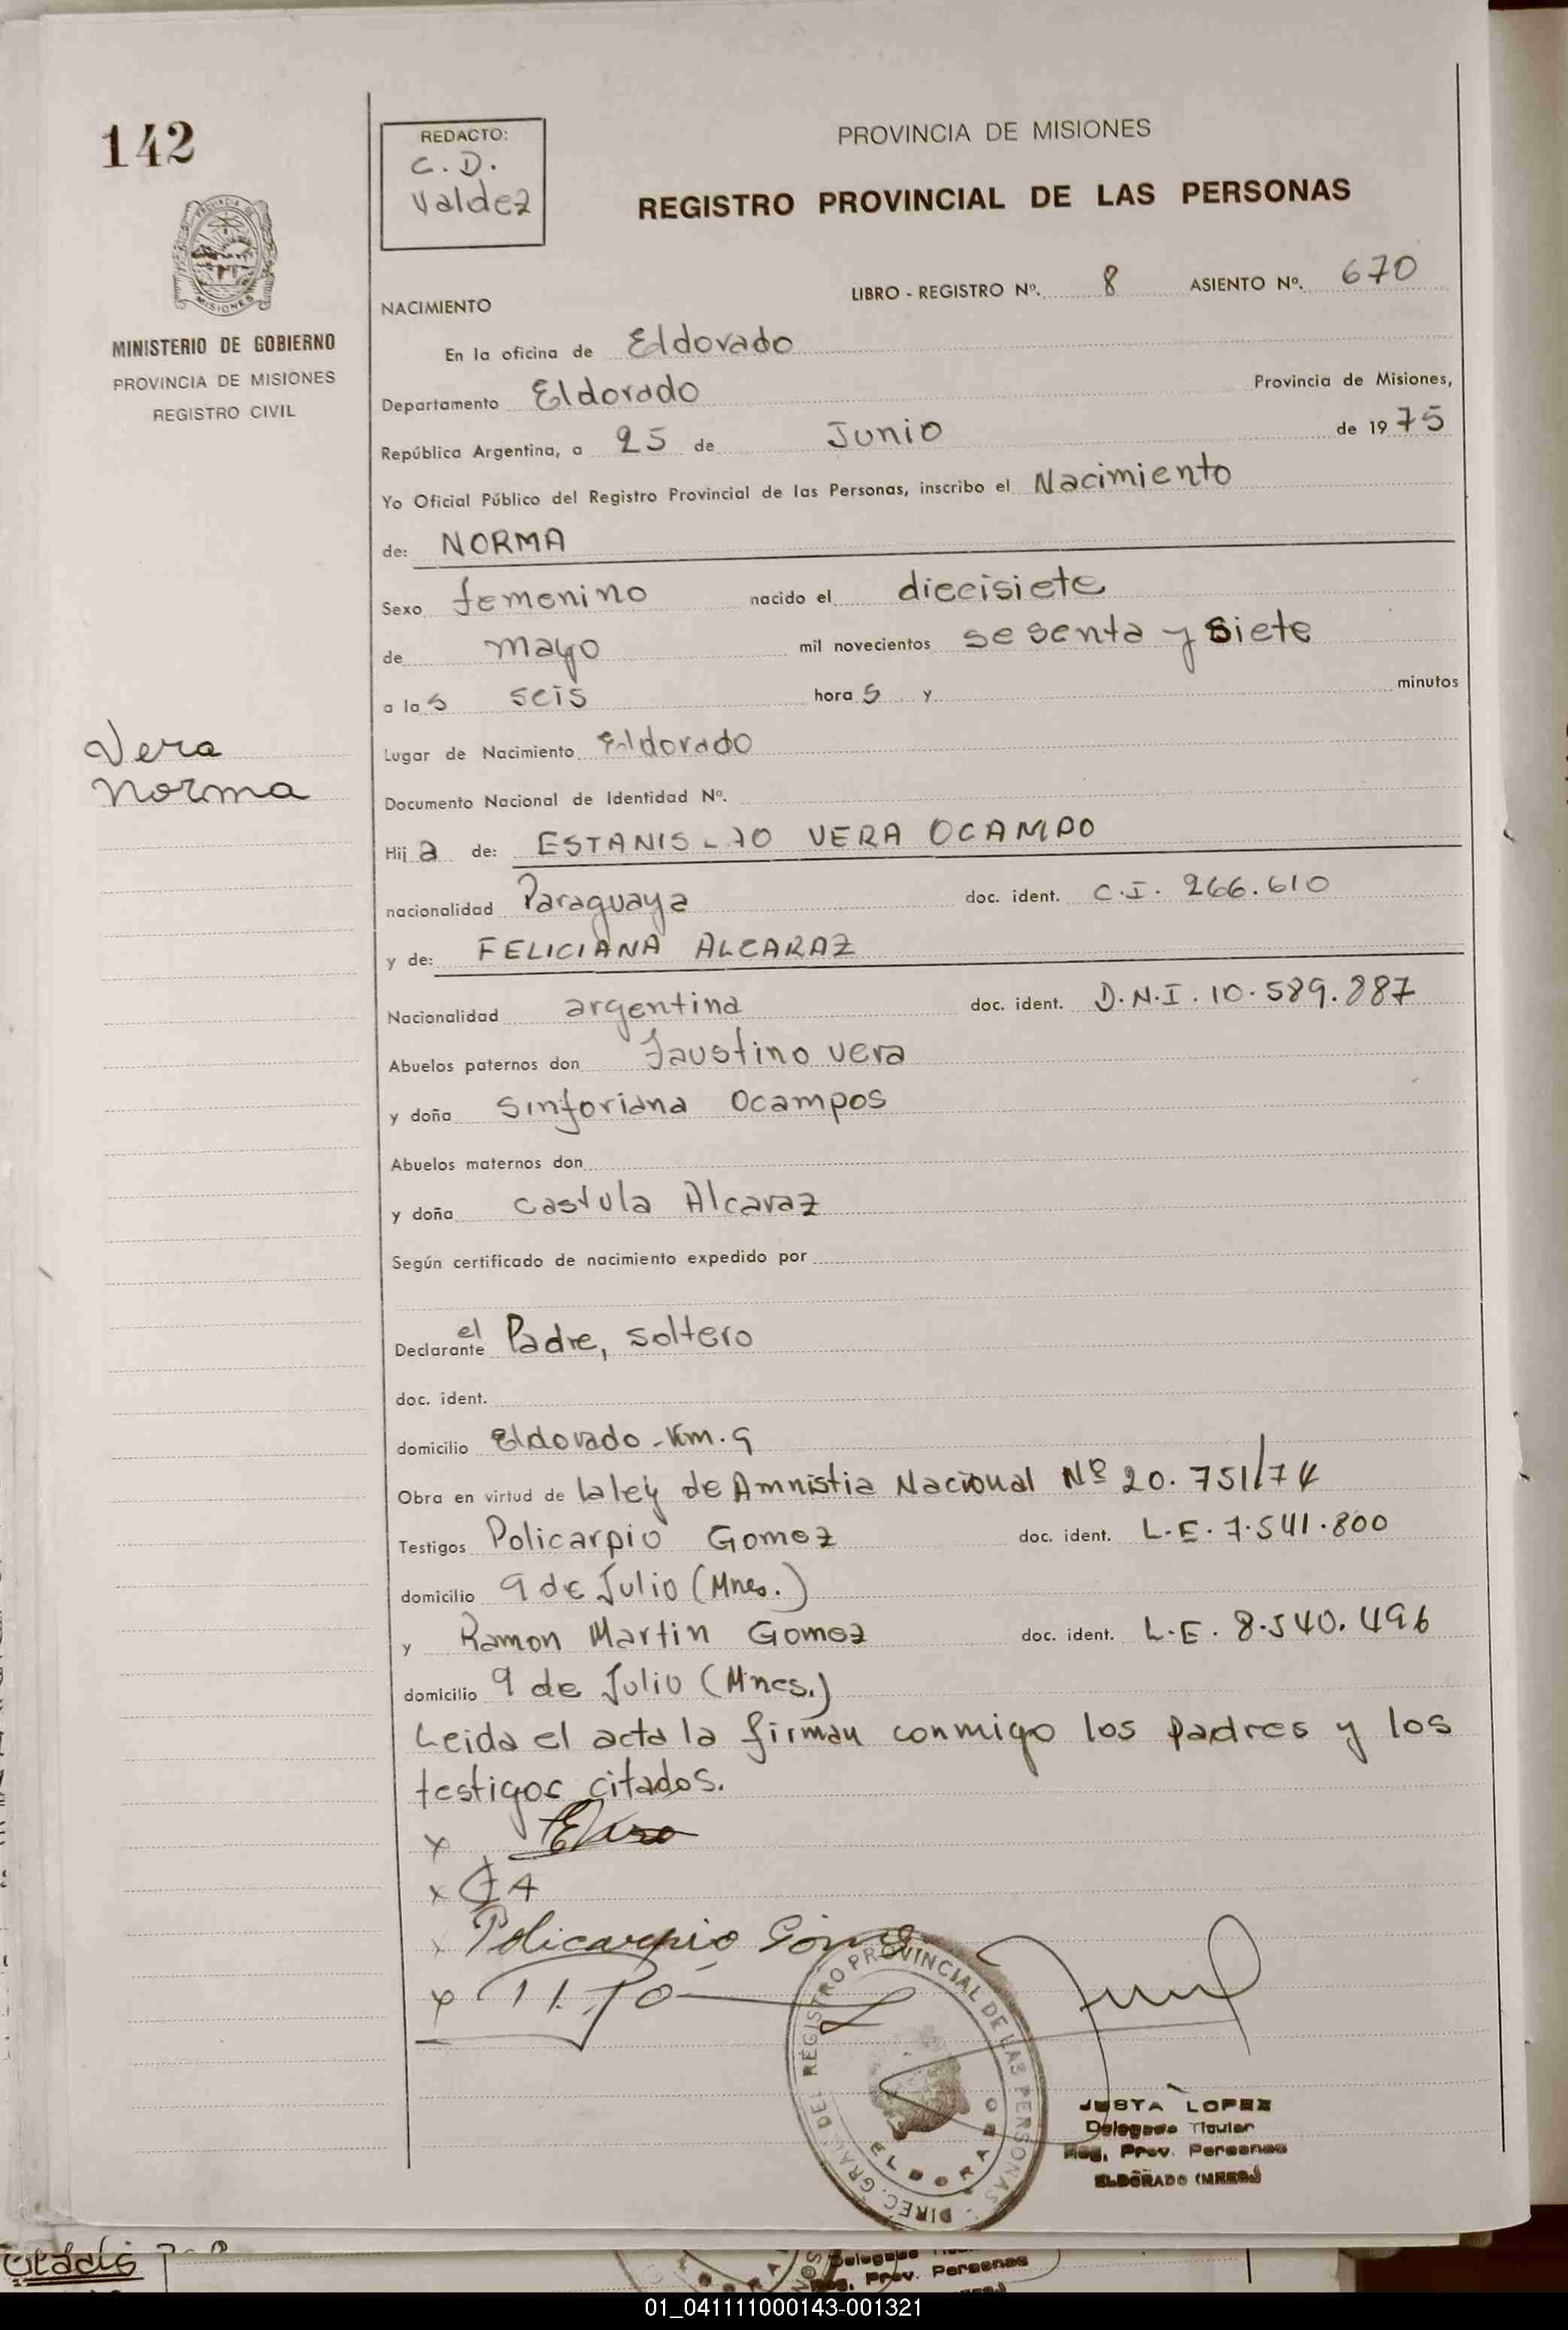 142
REDACTO:
C. D.
Valdez
PROVINCIA DE MISIONES
REGISTRO PROVINCIAL DE LAS PERSONAS
MISIONES
MINISTERIO DE GOBIERNO
PROVINCIA DE MISIONES
REGISTRO CIVIL
LIBRO - REGISTRO Nº. 8 ASIENTO Nº. 670
NACIMIENTO
En la oficina de Eldorado
Departamento Eldorado Provincia de Misiones,
República Argentina, a 25 de Junio de 1975
Yo Oficial Público del Registro Provincial de las Personas, inscribo el Nacimiento
de: NORMA
Sexo femenino nacido el diecisiete
de mayo mil novecientos sesenta y siete
a las seis horas y minutos
Vera
Norma
Lugar de Nacimiento Eldorado
Documento Nacional de Identidad Nº.
Hija de: ESTANISLAO VERA OCAMPO
nacionalidad Paraguaya doc. ident. C.I. 266.610
y de: FELICIANA ALCARAZ
Nacionalidad argentina doc. ident. D.N.I. 10.589.887
Abuelos paternos don Faustino vera
y doña Sinforiana Ocampos
Abuelos maternos don
y doña Castula Alcaraz
Según certificado de nacimiento expedido por
Declarante el Padre, soltero
doc. ident.
domicilio Eldorado - Km. 9
Obra en virtud de la ley de Amnistia Nacional Nº 20.751/74
Testigos Policarpio Gomez doc. ident. L.E. 7.541.800
domicilio 9 de Julio (Mnes.)
y Ramon Martin Gomez doc. ident. L.E. 8.540.496
domicilio 9 de Julio (Mnes.)
Leida el acta la firman conmigo los padres y los
testigos citados.
x
x
x Policarpio Gomez
x
DIREC. GRAL. DEL REGISTRO PROVINCIAL DE LAS PERSONAS
ELDORADO
JUSTA LOPEZ
Delegada Titular
Reg. Prov. Personas
ELDORADO (MNES.)
Delegada
Reg. Prov. Personas
01_041111000143-001321